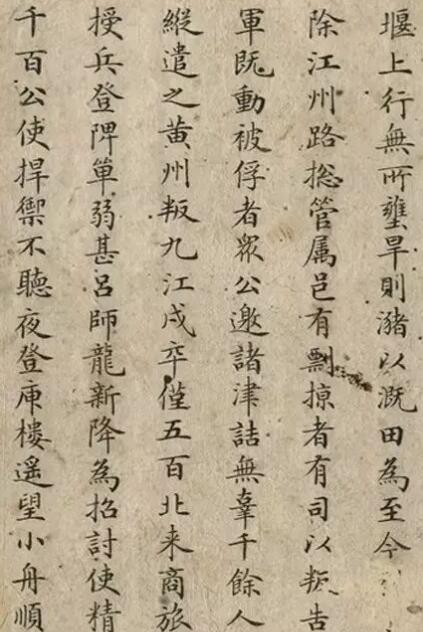 堰上行無所壅旱則瀦以溉田為至今
除江州路揔管属邑有剽掠者有司以叛告
軍既動被俘者眾公邀諸津詰無辜千餘人
縱遣之黄州叛九江戍卒僅五百北来商旅
授兵登陴單弱甚呂師龍新降為招討使精
千百公使捍禦不聽夜登庾樓遥望小舟順